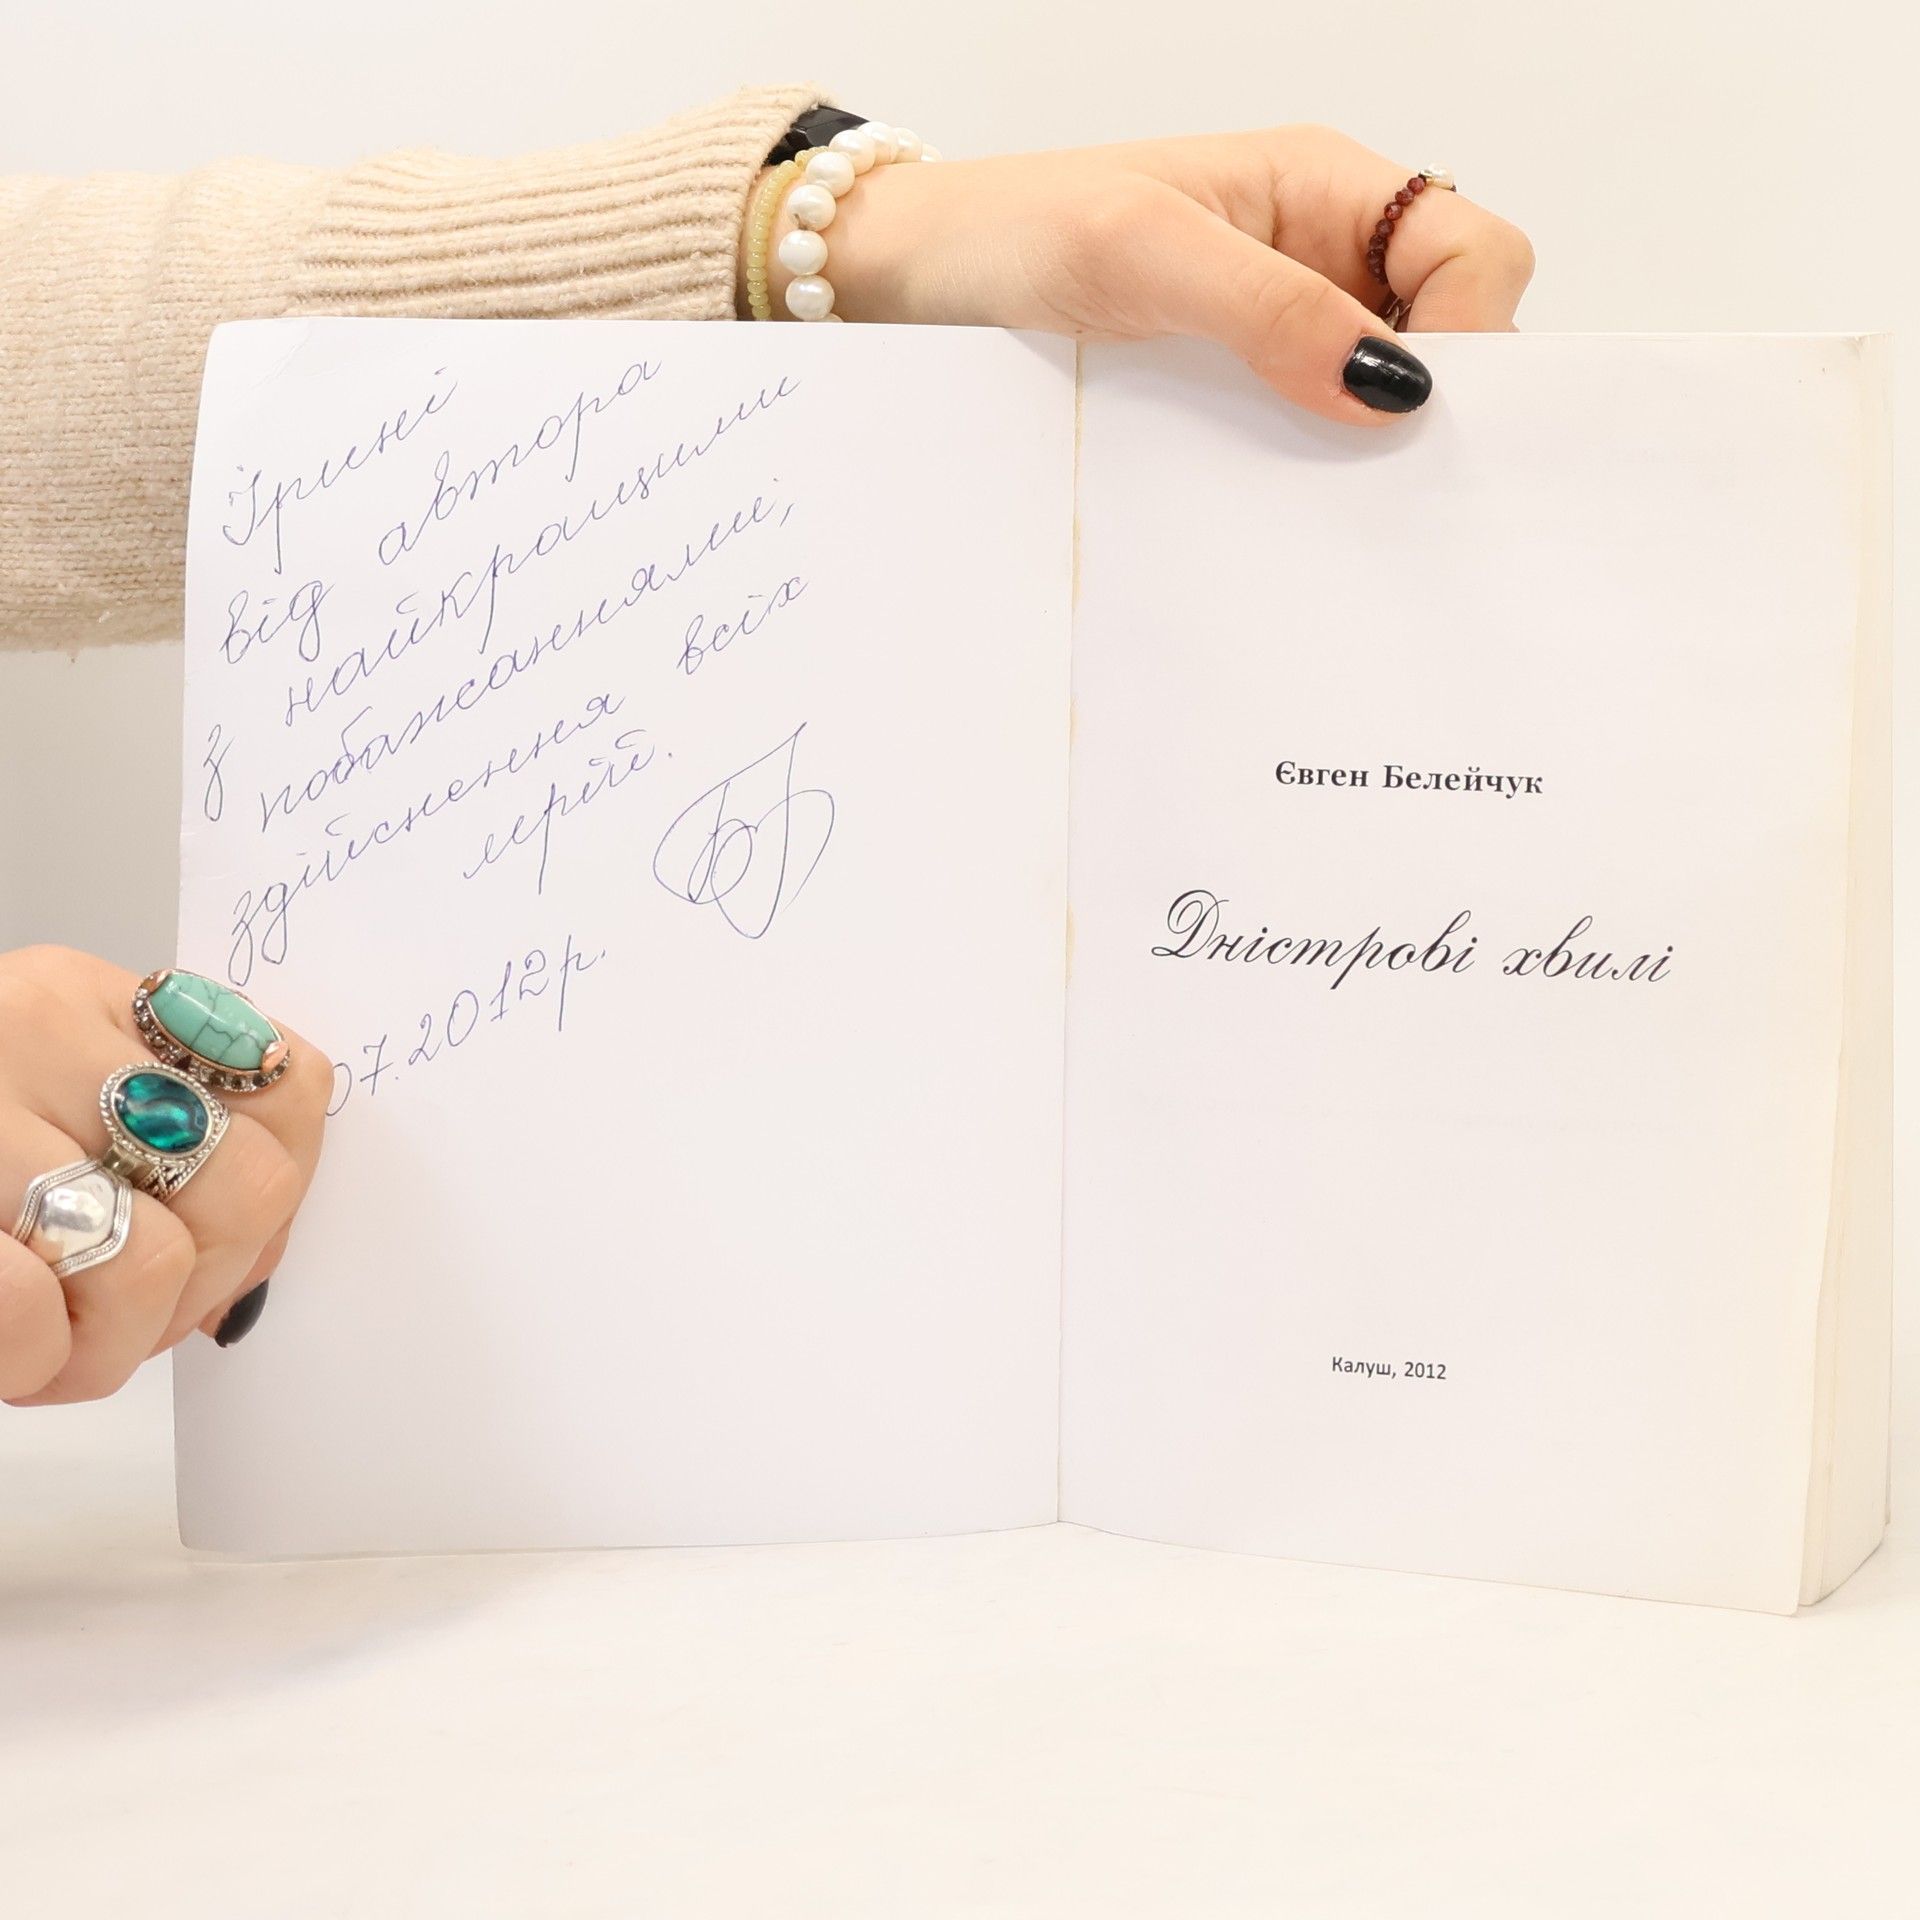 Ірині
від автора
з найкращими
побажаннями,
здійснення всіх
мрій.
07.2012р.
Євген Белейчук
Дністрові хвилі
Калуш, 2012